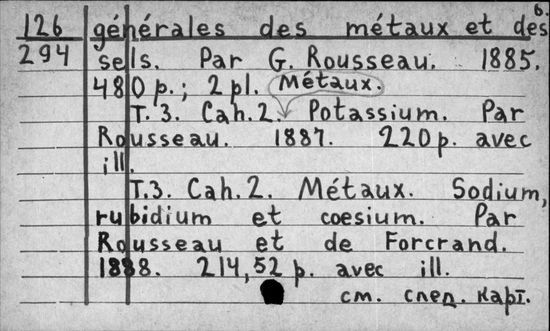 6.
126 générales des métaux et des
294 sels. Par G. Rousseau. 1885.
480 p.; 2 pl. Métaux.
T. 3. Cah. 2. Potassium. Par
Rousseau. 1887. 220 p. avec
ill.
T. 3. Cah. 2. Métaux. Sodium,
rubidium et coesium. Par
Rousseau et de Forcrand.
1888. 214, 52 p. avec ill.
см. след. карт.